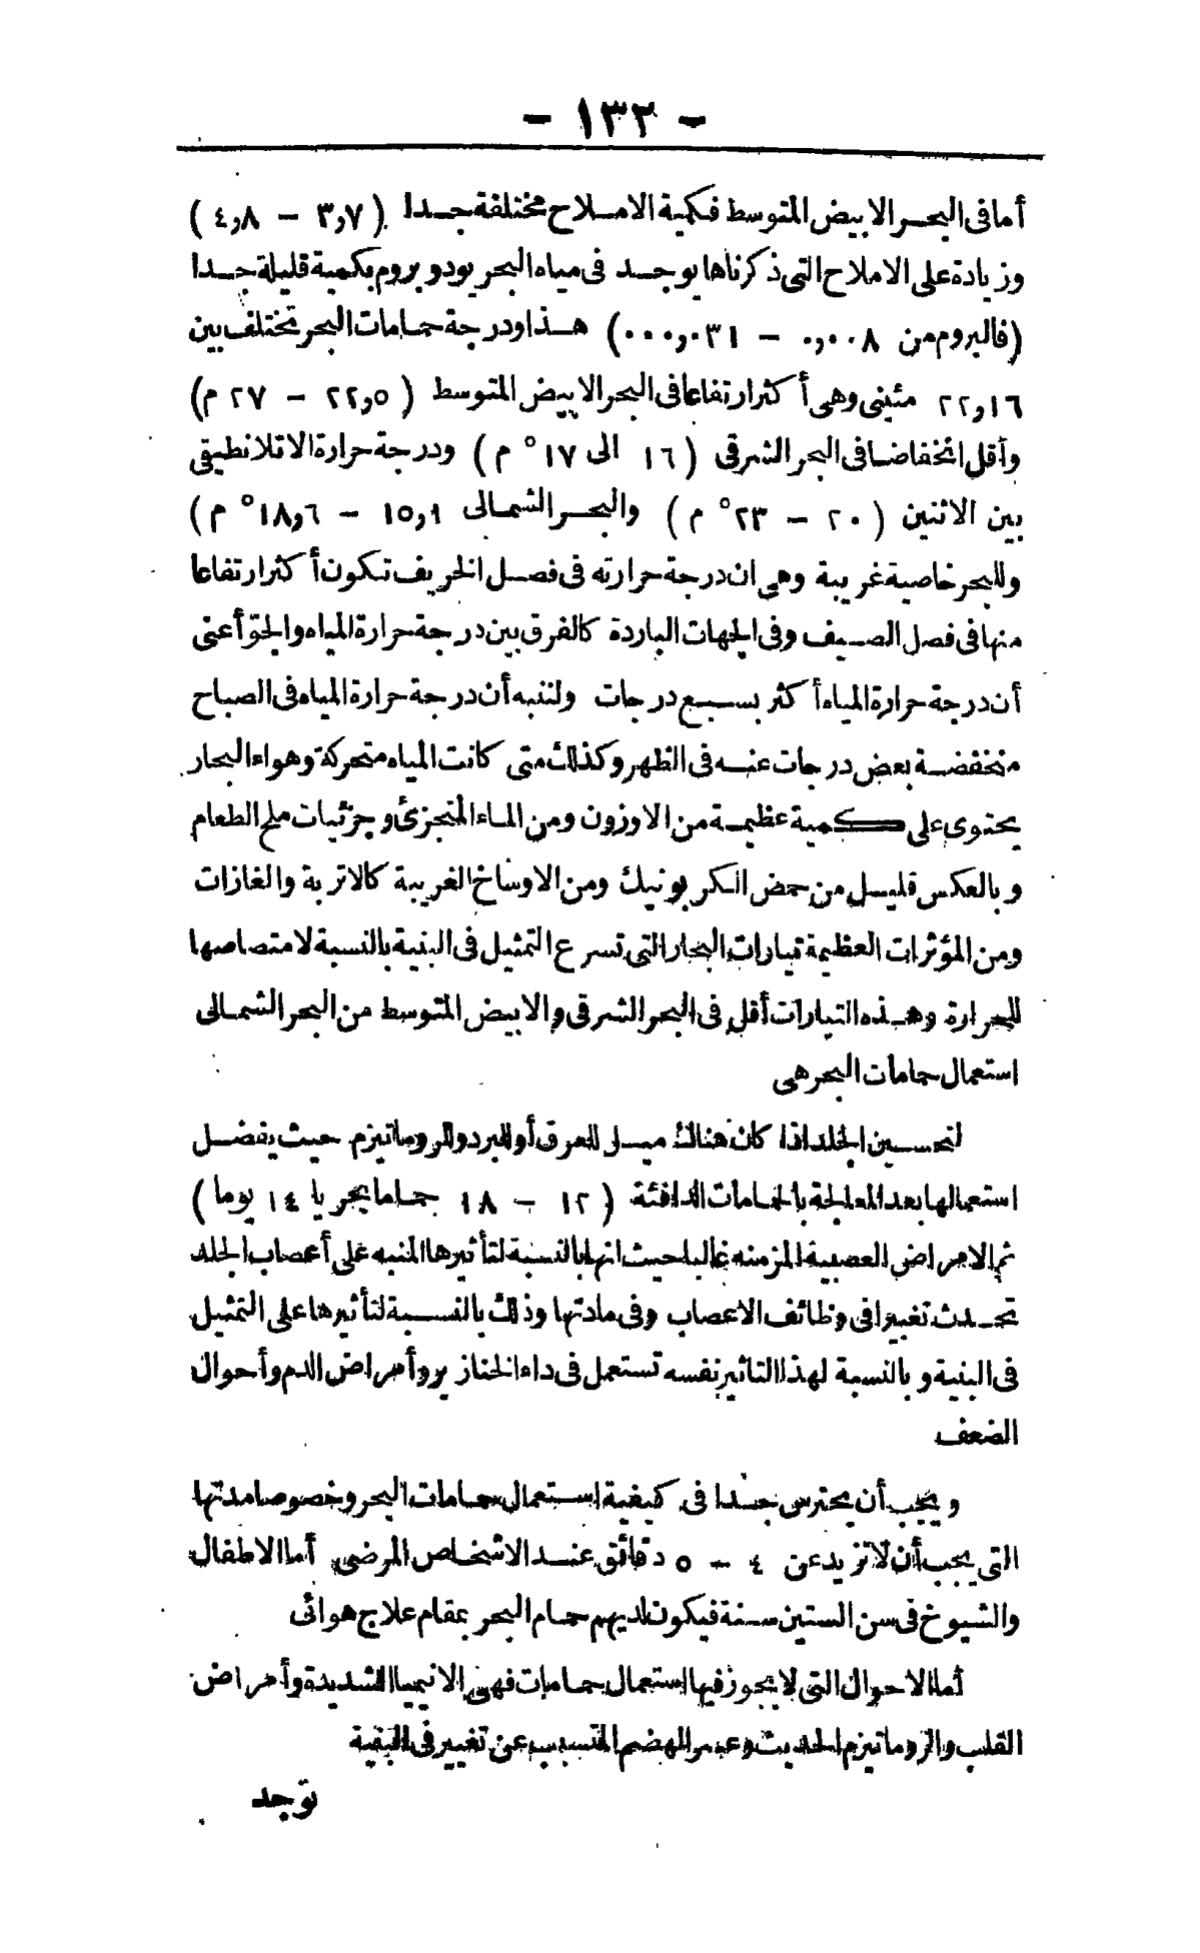 - ١٣٢ -
أما فى البحر الابيض المتوسط فكمية الاملاح مختلفة جدا (٣,٧ - ٤,٨)
وزيادة على الاملاح التى ذكرناها يوجد فى مياه البحر يود و بروم بكمية قليلة جدا
(فالبروم من ٠,٠٠٨ - ٠٠٠,٠٣١) هذا ودرجة حمامات البحر تختلف بين
٢٢,١٦ مئينى وهى أكثر ارتفاعا فى البحر الابيض المتوسط (٢٢,٥ - ٢٧ م)
وأقل انخفاضا فى البحر الشرقى (١٦ الى ١٧° م) ودرجة حرارة الاتلانطيقى
بين الاثنين (٢٠ - ٢٣° م) والبحر الشمالى ١٥,١ - ١٨,٦° م)
وللبحر خاصية غريبة وهى ان درجة حرارته فى فصل الخريف تكون أكثر ارتفاعا
منها فى فصل الصيف وفى الجهات الباردة كالفرق بين درجة حرارة المياه والجو أعنى
أن درجة حرارة المياه أكثر بسبع درجات ولننبه أن درجة حرارة المياه فى الصباح
منخفضة بعض درجات عنه فى الظهر وكذلك متى كانت المياه متحركة وهواء البحار
يحتوى على كمية عظيمة من الاوزون ومن الماء المتجزئ وجزئيات ملح الطعام
و بالعكس قليل من حمض الكربونيك ومن الاوساخ الغريبة كالاتربة والغازات
ومن المؤثرات العظيمة تيارات البحار التى تسرع التمثيل فى البنية بالنسبة لامتصاصها
للحرارة وهذه التيارات أقل فى البحر الشرقى والابيض المتوسط من البحر الشمالى
استعمال حمامات البحر هى
لتحسين الجلد اذا كان هناك ميل للعرق أو للبرد والروماتيزم حيث يفضل
استعمالها بعد المعالجة بالحمامات الدافئة (١٢ - ١٨ حماما بحريا ١٤ يوما)
ثم الامراض العصبية المزمنه غالبا حيث انها بالنسبة لتأثيرها المنبه على أعصاب الجلد
تحدث تغييرا فى وظائف الاعصاب وفى مادتها وذلك بالنسبة لتأثيرها على التمثيل
فى البنية و بالنسبة لهذا التاثير نفسه تستعمل فى داء الخنازير وأمراض الدم وأحوال
الضعف
ويجب أن يحترس جدا فى كيفية استعمال حمامات البحر وخصوصا مدتها
التى يجب أن لا تزيد عن ٤ - ٥ دقائق عند الاشخاص المرضى أما الاطفال
والشيوخ فى سن الستين سنة فيكون لديهم حمام البحر بمقام علاج هوائى
أما الاحوال التى لا يجوز فيها استعمال حمامات فهى الانيميا الشديدة وأمراض
القلب والروماتيزم الحديث وعسر الهضم المتسبب عن تغيير فى البنية
توجد